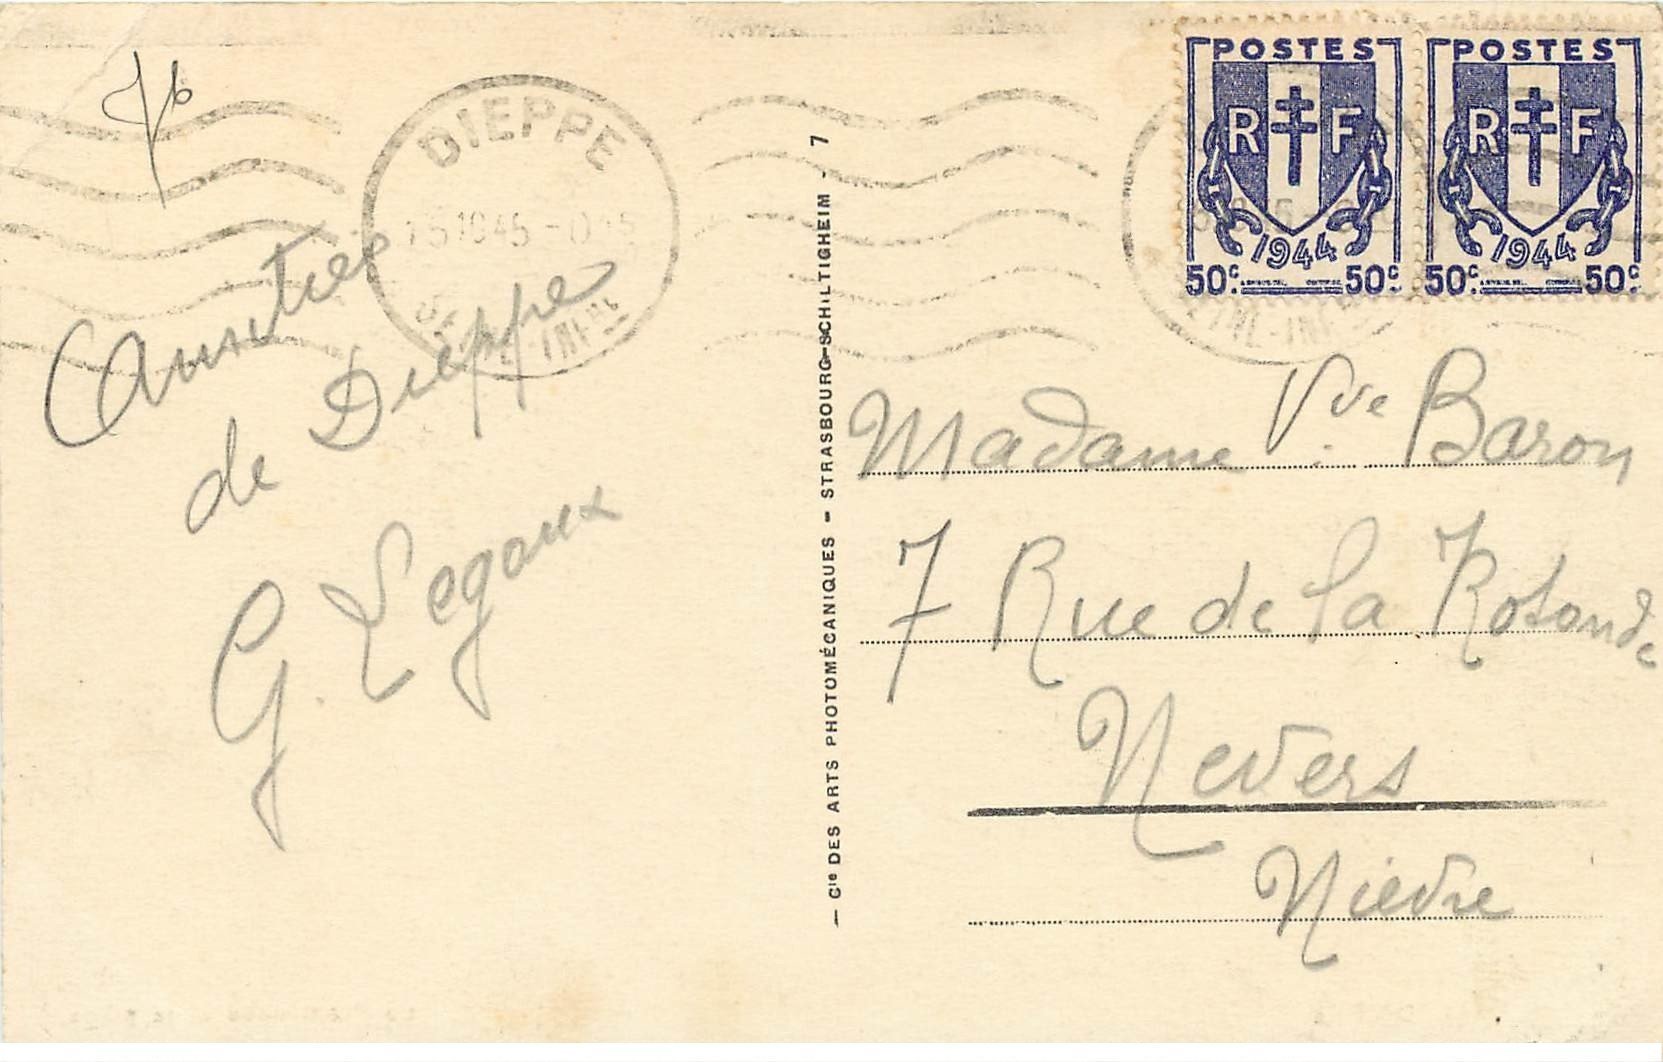 DIEPPE
15 10 45
SEINE-INFRE
POSTES
RF
1944
50c. 50c
POSTES
RF
1944
50c. 50c
Amitiés
de Dieppe
G. Legoux
— Cie DES ARTS PHOTOMÉCANIQUES - STRASBOURG-SCHILTIGHEIM - 7
Madame Vve Baron
7 Rue de la Rotonde
Nevers
Nièvre